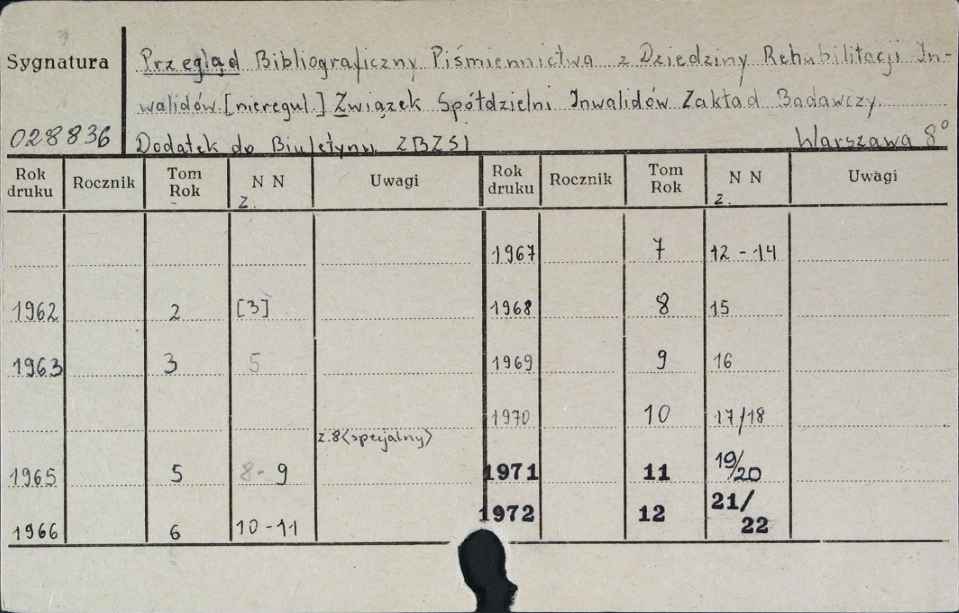 Sygnatura Przegląd Bibliograficzny Piśmiennictwa z Dziedziny Rehabilitacji In-
walidów. [nieregul.] Związek Spółdzielni Inwalidów Zakład Badawczy.
028836 Dodatek do Biuletynu ZBZSI Warszawa 8°
Rok druku Rocznik Tom Rok N N z. Uwagi Rok druku Rocznik Tom Rok N N z. Uwagi
1967 7 12-14
1962 2 [3] 1968 8 15
1963 3 5 1969 9 16
1970 10 17/18
z.8<specjalny>
1965 5 8-9 1971 11 19/20
1966 6 10-11 1972 12 21/22